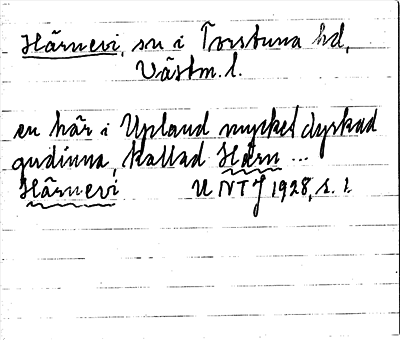 Härnevi, sn i Torstuna hd,
Västm. l.
en här i Upland mycket dyrkad
gudinna, kallad Härn ...
Härnevi UNTJ 1928, s. 2